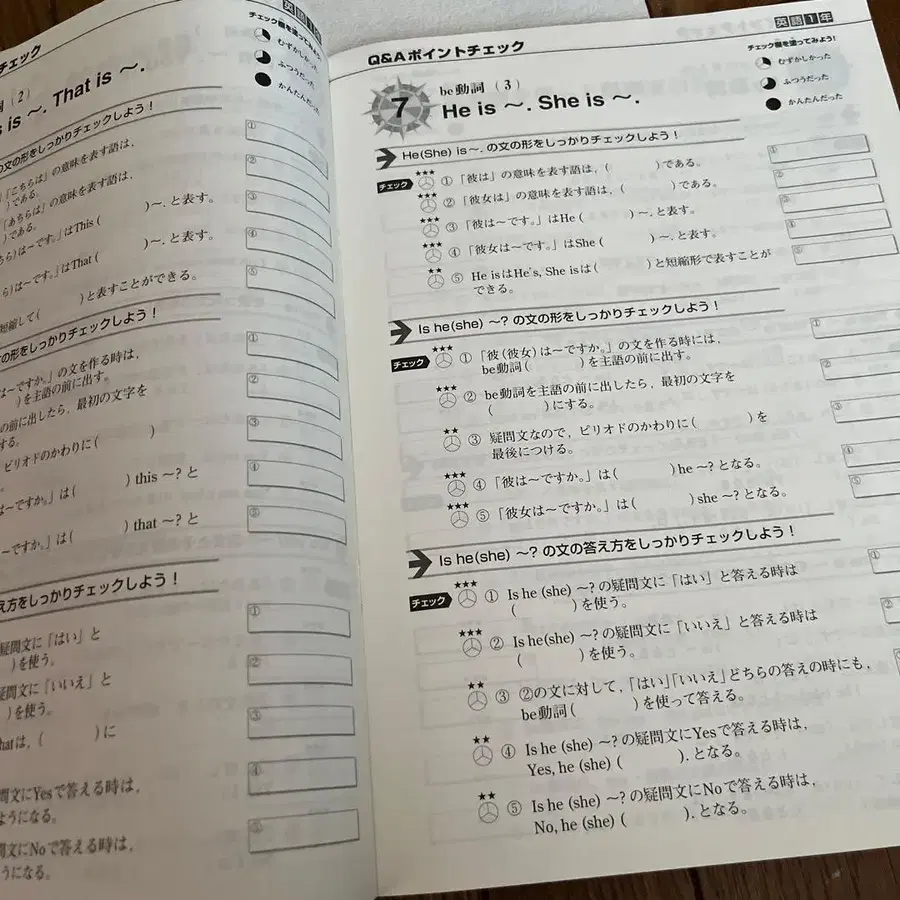 チェック
英語1年
チェック欄を塗ってみよう!
むずかしかった
ふつうだった
かんたんだった
詞 (2)
is ~. That is ~.
の文の形をしっかりチェックしよう!
「こちらは」の意味を表す語は,
)である。
「あちらは」の意味を表す語は,
)である。
ら)は~です。」はThis ( )~. と表す。
ら)は~です。」はThat ( )~. と表す。
短縮して( )と表すことができる。
の形をしっかりチェックしよう!
は~ですか。」の文を作る時は,
)を主語の前に出す。
の前に出したら, 最初の文字を
する。
ピリオドのかわりに( )
は~ですか。」は( ) this ~? と
は~ですか。」は( ) that ~? と
え方をしっかりチェックしよう!
疑問文に「はい」と
)を使う。
疑問文に「いいえ」と
)を使う。
thatは, ( )に
問文にYesで答える時は,
ようになる。
問文にNoで答える時は,
うになる。
①
②
③
④
⑤
①
②
③
④
⑤
①
②
③
④
⑤
Q&Aポイントチェック
英語1年
チェック欄を塗ってみよう!
むずかしかった
ふつうだった
かんたんだった
7
be動詞 (3)
He is ~. She is ~.
He(She) is~. の文の形をしっかりチェックしよう!
チェック ★★★ ① 「彼は」の意味を表す語は, ( )である。
★★★ ② 「彼女は」の意味を表す語は, ( )である。
★★★ ③ 「彼は~です。」はHe ( )~. と表す。
★★★ ④ 「彼女は~です。」はShe ( )~. と表す。
★★ ⑤ He isはHe's, She isは( )と短縮形で表すことが
できる。
①
②
③
④
⑤
Is he(she) ~? の文の形をしっかりチェックしよう!
チェック ★★★ ① 「彼(彼女)は~ですか。」の文を作る時には,
be動詞( )を主語の前に出す。
★★★ ② be動詞を主語の前に出したら, 最初の文字を
( )にする。
★★ ③ 疑問文なので, ピリオドのかわりに( )を
最後につける。
★★★ ④ 「彼は~ですか。」は( )he ~? となる。
★★★ ⑤ 「彼女は~ですか。」は( )she ~? となる。
①
②
③
④
⑤
Is he(she) ~? の文の答え方をしっかりチェックしよう!
チェック ★★★ ① Is he (she) ~? の疑問文に「はい」と答える時は
( )を使う。
★★★ ② Is he(she) ~? の疑問文に「いいえ」と答える時は
( )を使う。
★★ ③ ②の文に対して, 「はい」「いいえ」どちらの答えの時にも,
be動詞( )を使って答える。
★★ ④ Is he (she) ~? の疑問文にYesで答える時は,
Yes, he (she) ( ). となる。
★★ ⑤ Is he (she) ~? の疑問文にNoで答える時は,
No, he (she) ( ). となる。
①
②